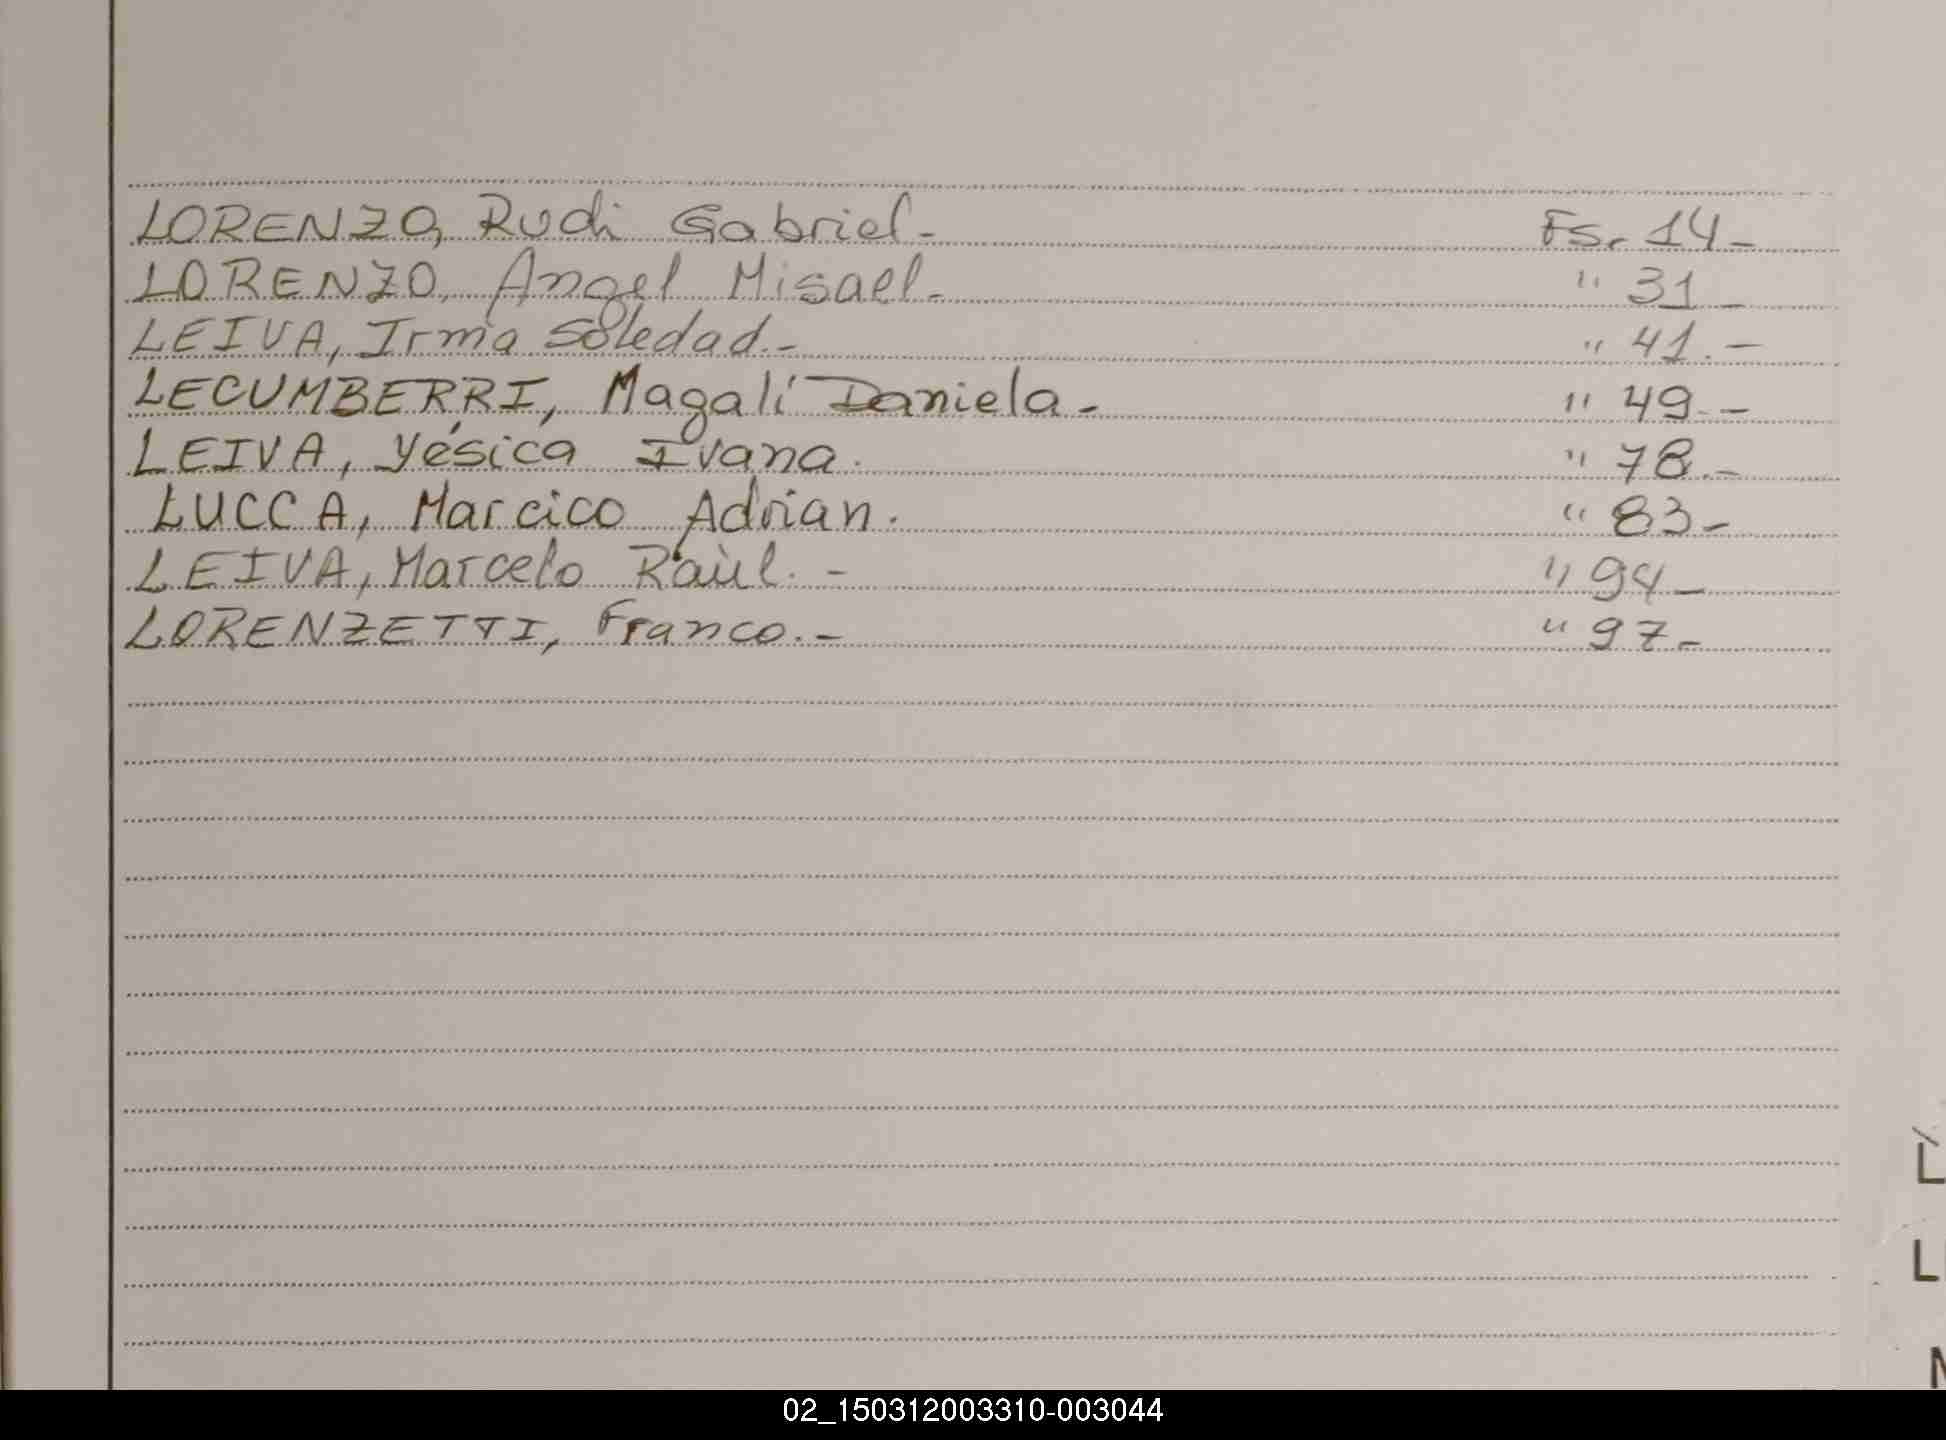 LORENZO, Rudi Gabriel- Fs. 14-
LORENZO, Angel Misael- " 31-
LEIVA, Irma Soledad.- " 41.-
LECUMBERRI, Magalí Daniela- " 49.-
LEIVA, Yésica Ivana. " 78.-
LUCCA, Marcico Adrian. " 83-
LEIVA, Marcelo Raùl.- " 94-
LORENZETTI, Franco.- " 97-
L
L
N
02_150312003310-003044